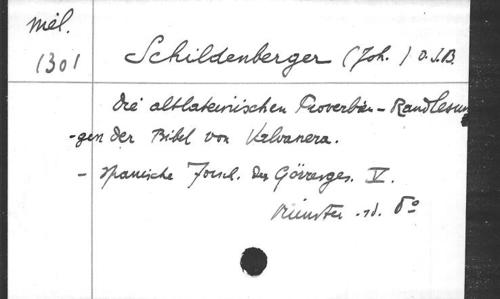 Mél.
1301
Schildenberger (Joh.) O.S.B.
Die altlateinischen Proverbien-Randlesun
-gen der Bibel von Valvanera.
- Spanische Forsch. der Görresges. V.
Münster .sd. 8°